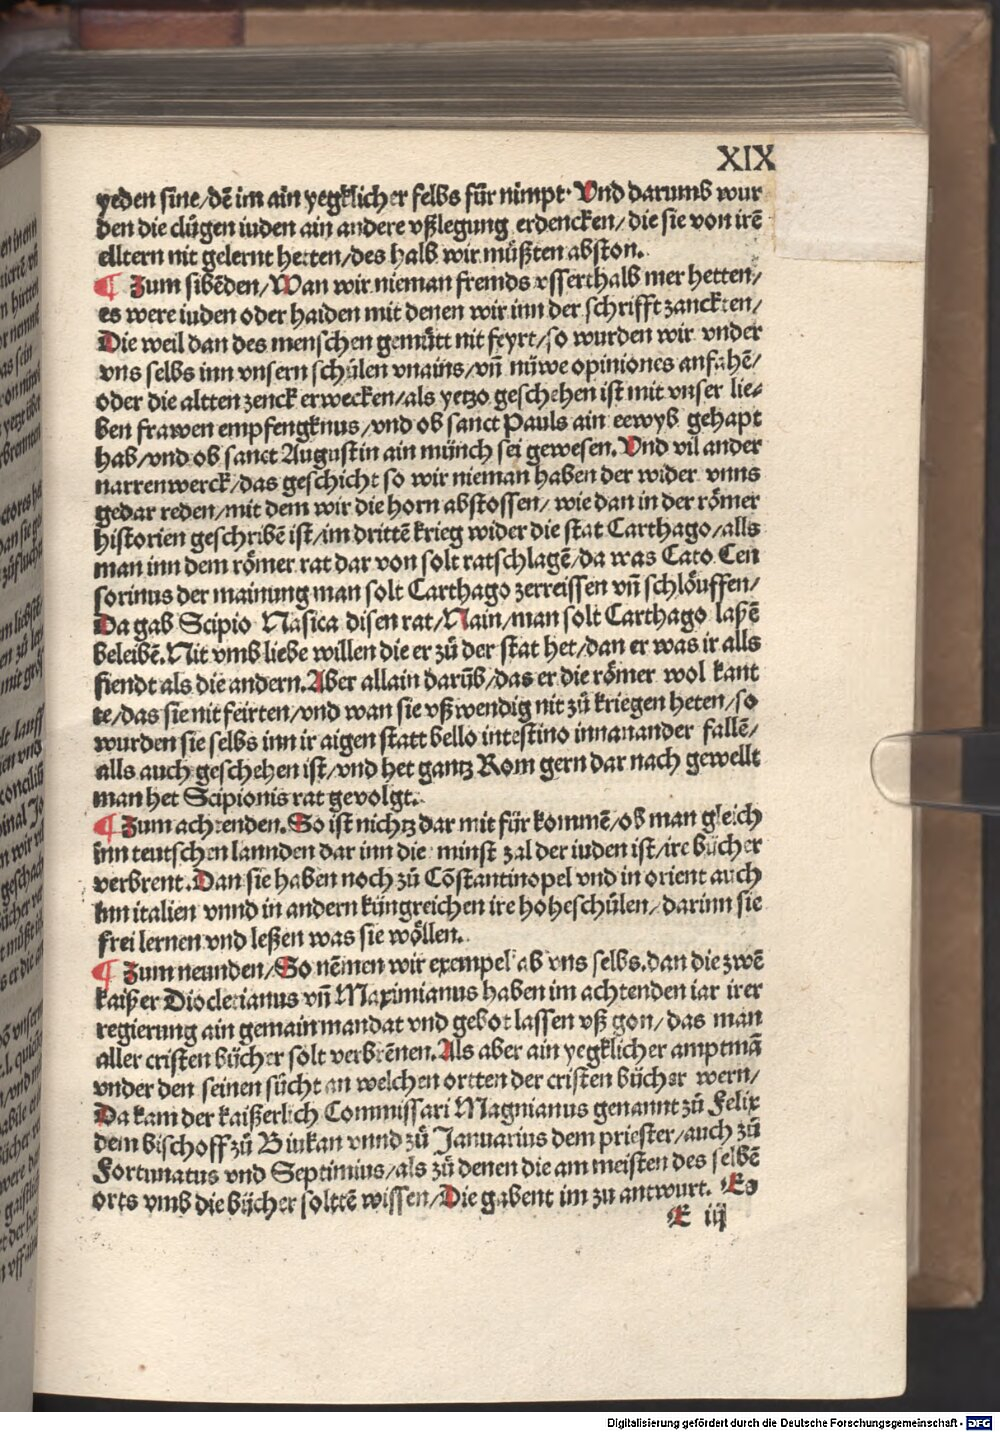 XIX
yeden sine/dē im ain yegklicher selbs für nimpt· Vnd darumb wur
den die clůgen iuden ain andere vßlegung erdencken/ die sie von irē
elltern nit gelernt hetten/des halb wir můßten abston.
¶ Zum sibēden/Wan wir nieman fremds vsserthalb mer hetten/
es were iuden oder haiden mit denen wir inn der schrifft zanckten/
Die weil dan des menschen gemütt nit feyrt/so wurden wir vnder
vns selbs inn vnsern schůlen vnains/vñ nüwe opiniones anfahē/
oder die altten zenck erwecken/als yetzo geschehen ist mit vnser lie⸗
ben frawen empfengknus/vnd ob sanct Pauls ain eewyb gehapt
hab/vnd ob sanct Augustin ain münch sei gewesen. Vnd vil ander
narrenwerck/das geschicht so wir nieman haben der wider vnns
gedar reden/mit dem wir die horn abstossen/ wie dan in der römer
historien geschribē ist/im drittē krieg wider die stat Carthago/alls
man inn dem römer rat dar von solt ratschlagē/da was Cato Cen
sorinus der mainung man solt Carthago zerreissen vñ schlöuffen/
Da gab Scipio Nasica disen rat/Nain/man solt Carthago laßē
beleibē. Nit vmb liebe willen die er zů der stat het/dan er was ir alls
fiendt als die andern. Aber allain darūb/das er die römer wol kant
te/das sie nit feirten/vnd wan sie vßwendig nit zů kriegen heten/so
wurden sie selbs inn ir aigen statt bello intestino innanander fallē/
alls auch geschehen ist/vnd het gantz Rom gern dar nach gewellt
man het Scipionis rat gevolgt.
¶ Zum achtenden. So ist nichtz dar mit für kommē/ob man gleich
inn teutschen lannden dar inn die minst zal der iuden ist/ire bücher
verbrent. Dan sie haben noch zů Cōstantinopel vnd in orient auch
inn italien vnnd in andern küngreichen ire hoheschůlen/ darinn sie
frei lernen vnd leßen was sie wöllen.
¶ Zum neunden/So nēmen wir exempel ab vns selbs. dan die zwē
kaißer Dioclerianus vñ Maximianus haben im achtenden iar irer
regierung ain gemain mandat vnd gebot lassen vß gon/ das man
aller cristen bücher solt verbrēnen. Als aber ain yegklicher amptmā
vnder den seinen sůcht an welchen ortten der cristen bücher wern/
Da kam der kaißerlich Commissari Magnianus genannt zů Felix
dem bischoff zů Biukan vnnd zů Januarius dem priester/auch zů
Fortunatus vnd Septimius/als zů denen die am meisten des selbē
orts vmb die bücher solttē wissen/Die gabent im zu antwurt. Es
E iij
Digitalisierung gefördert durch die Deutsche Forschungsgemeinschaft - DFG